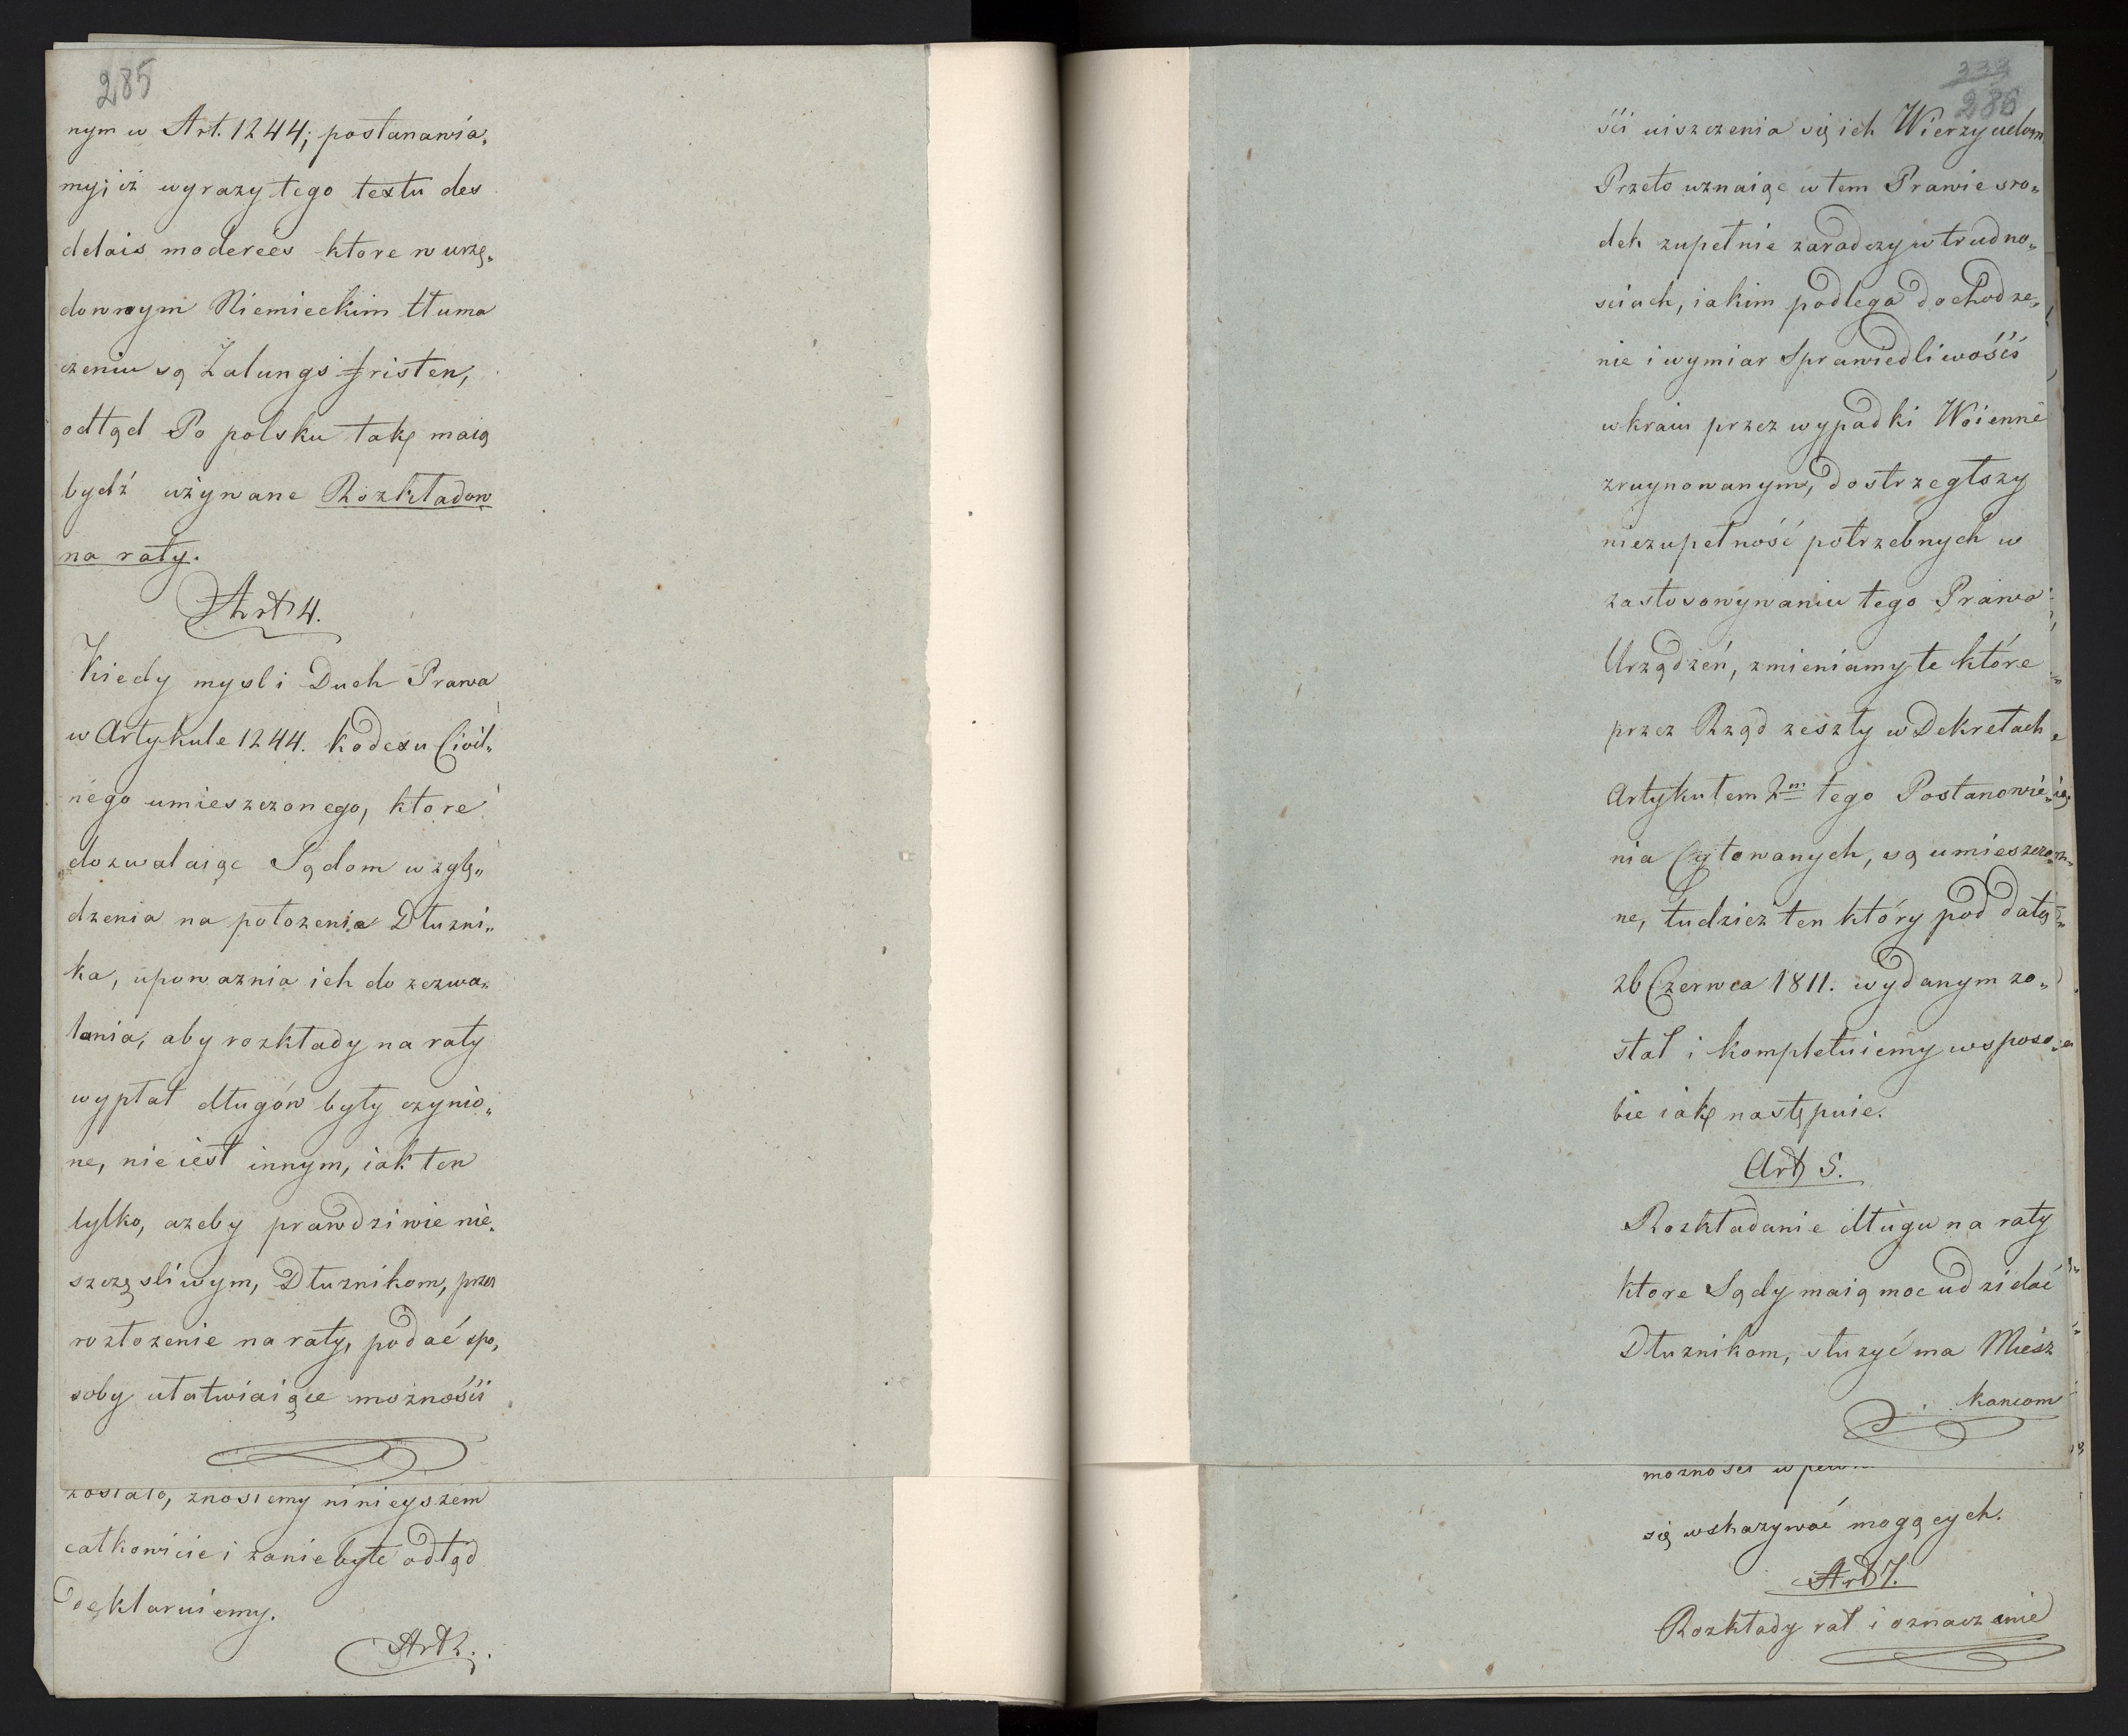 285
nym w Art. 1244; postanawia„
my; iż wyrazy tego textu des
delais moderées ktore w urzę„
dowwym Niemieckim tłuma
czeniu są Zalungs fristen,
odtąd Po polsku tak maią
bydź używane Rozkładow
na raty.
Art 4.
Kiedy mysli Duch Prawa
w Artykule 1244. Kodexu Civil„
nego umieszczonego, ktore
dozwalaiąc Sądom wzglę„
dzenia na położenie Dłużni„
ka, upoważnia ich do zezwa„
lania, aby rozkłady na raty
wypłat długów były czynio„
ne, nie iest innym, iak ten
tylko, azeby prawdziwie nie„
szczęsliwym, Dłuznikom, przez
rozłozenie na raty, podać spo„
soby ułatwiaiące możności
zostało, znosiemy ninieyszem
całkowicie i zaniebyłe odtąd
Deklaruiemy.
Art 2.
333
286
ści uiszczenia się ich Wierzycielom
Przeto uznaiąc w tem Prawie sro„
dek zupełnie zaradczy w trudno„
sciach, iakim podlega dochodze„
nie i wymiar Sprawiedliwości
w kraiu przez wypadki Woienne
zruynowanym, dostrzegłszy
niezupełność potrzebnych w
zastosowywaniu tego Prawa
Urządzeń, zmieniamy te które
przez Rząd zeszły w Dekretach
Artykułem 2m tego Postanowie„
nia Cytowanych, są umieszczo„
ne, tudziez ten który pod datą
26 Czerwca 1811. wydanym zo„
stał i kompletuiemy w sposo„
bie iak następuie.
Art 5.
Rozkładanie długu na raty
ktore Sądy maią moc udzielać
Dłuznikom, służyć ma Miesz
kancom
możności w
się wskazywać mogących.
Art 7.
Rozkłady rat i oznaczenie